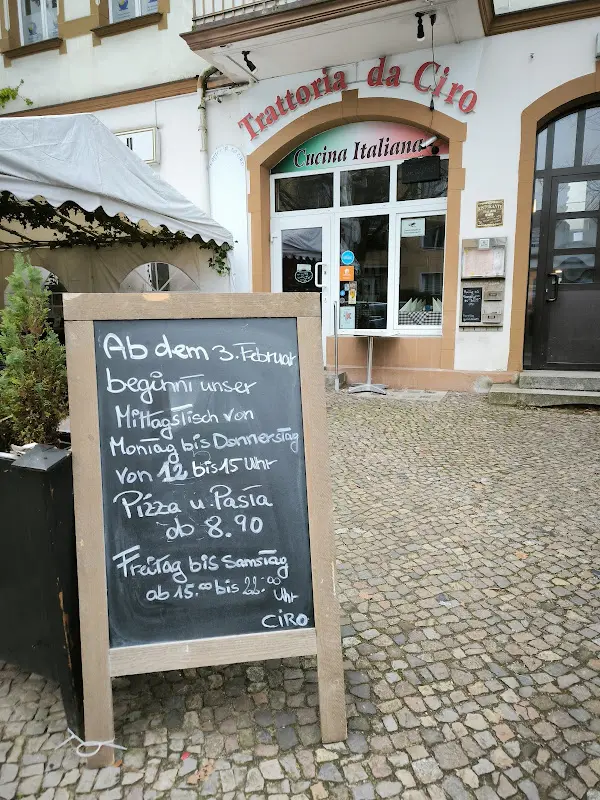 Trattoria da Ciro
Cucina Italiana
Ab dem 3. Februar
beginnt unser
Mittagstisch von
Montag bis Donnerstag
von 12 bis 15 Uhr
Pizza u. Pasta
ab 8.90
Freitag bis Samstag
ab 15.00 bis 22.00
Uhr
CIRO